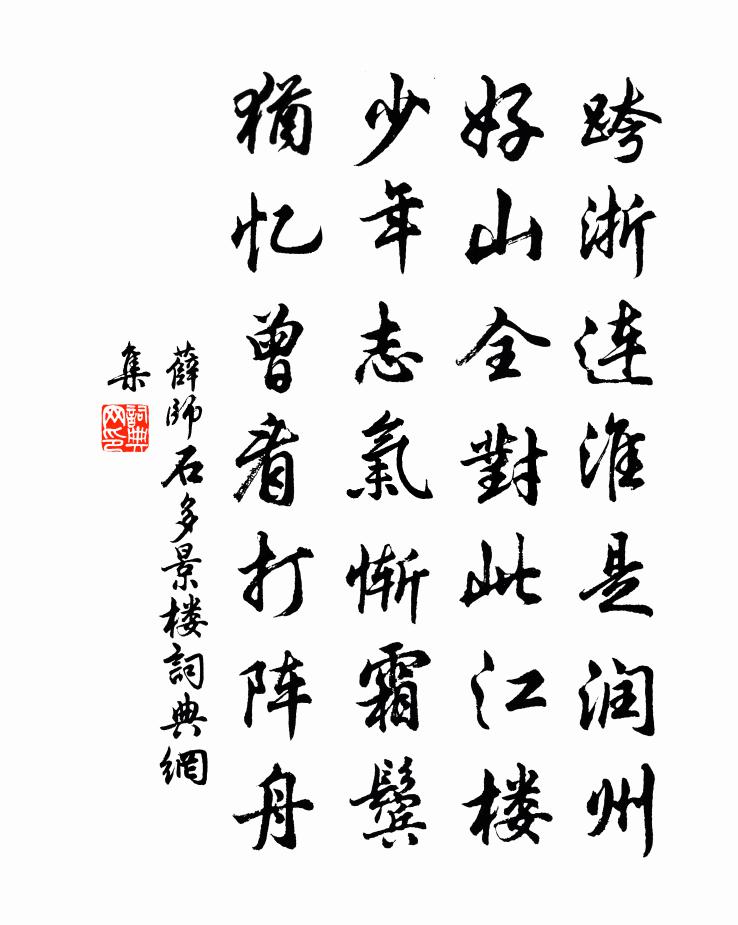 跨浙连淮是润州
好山全對此江楼
少年志氣惭霜鬓
犹忆曾看打阵舟
薛師石多景楼詞典網
集
詞典
网印